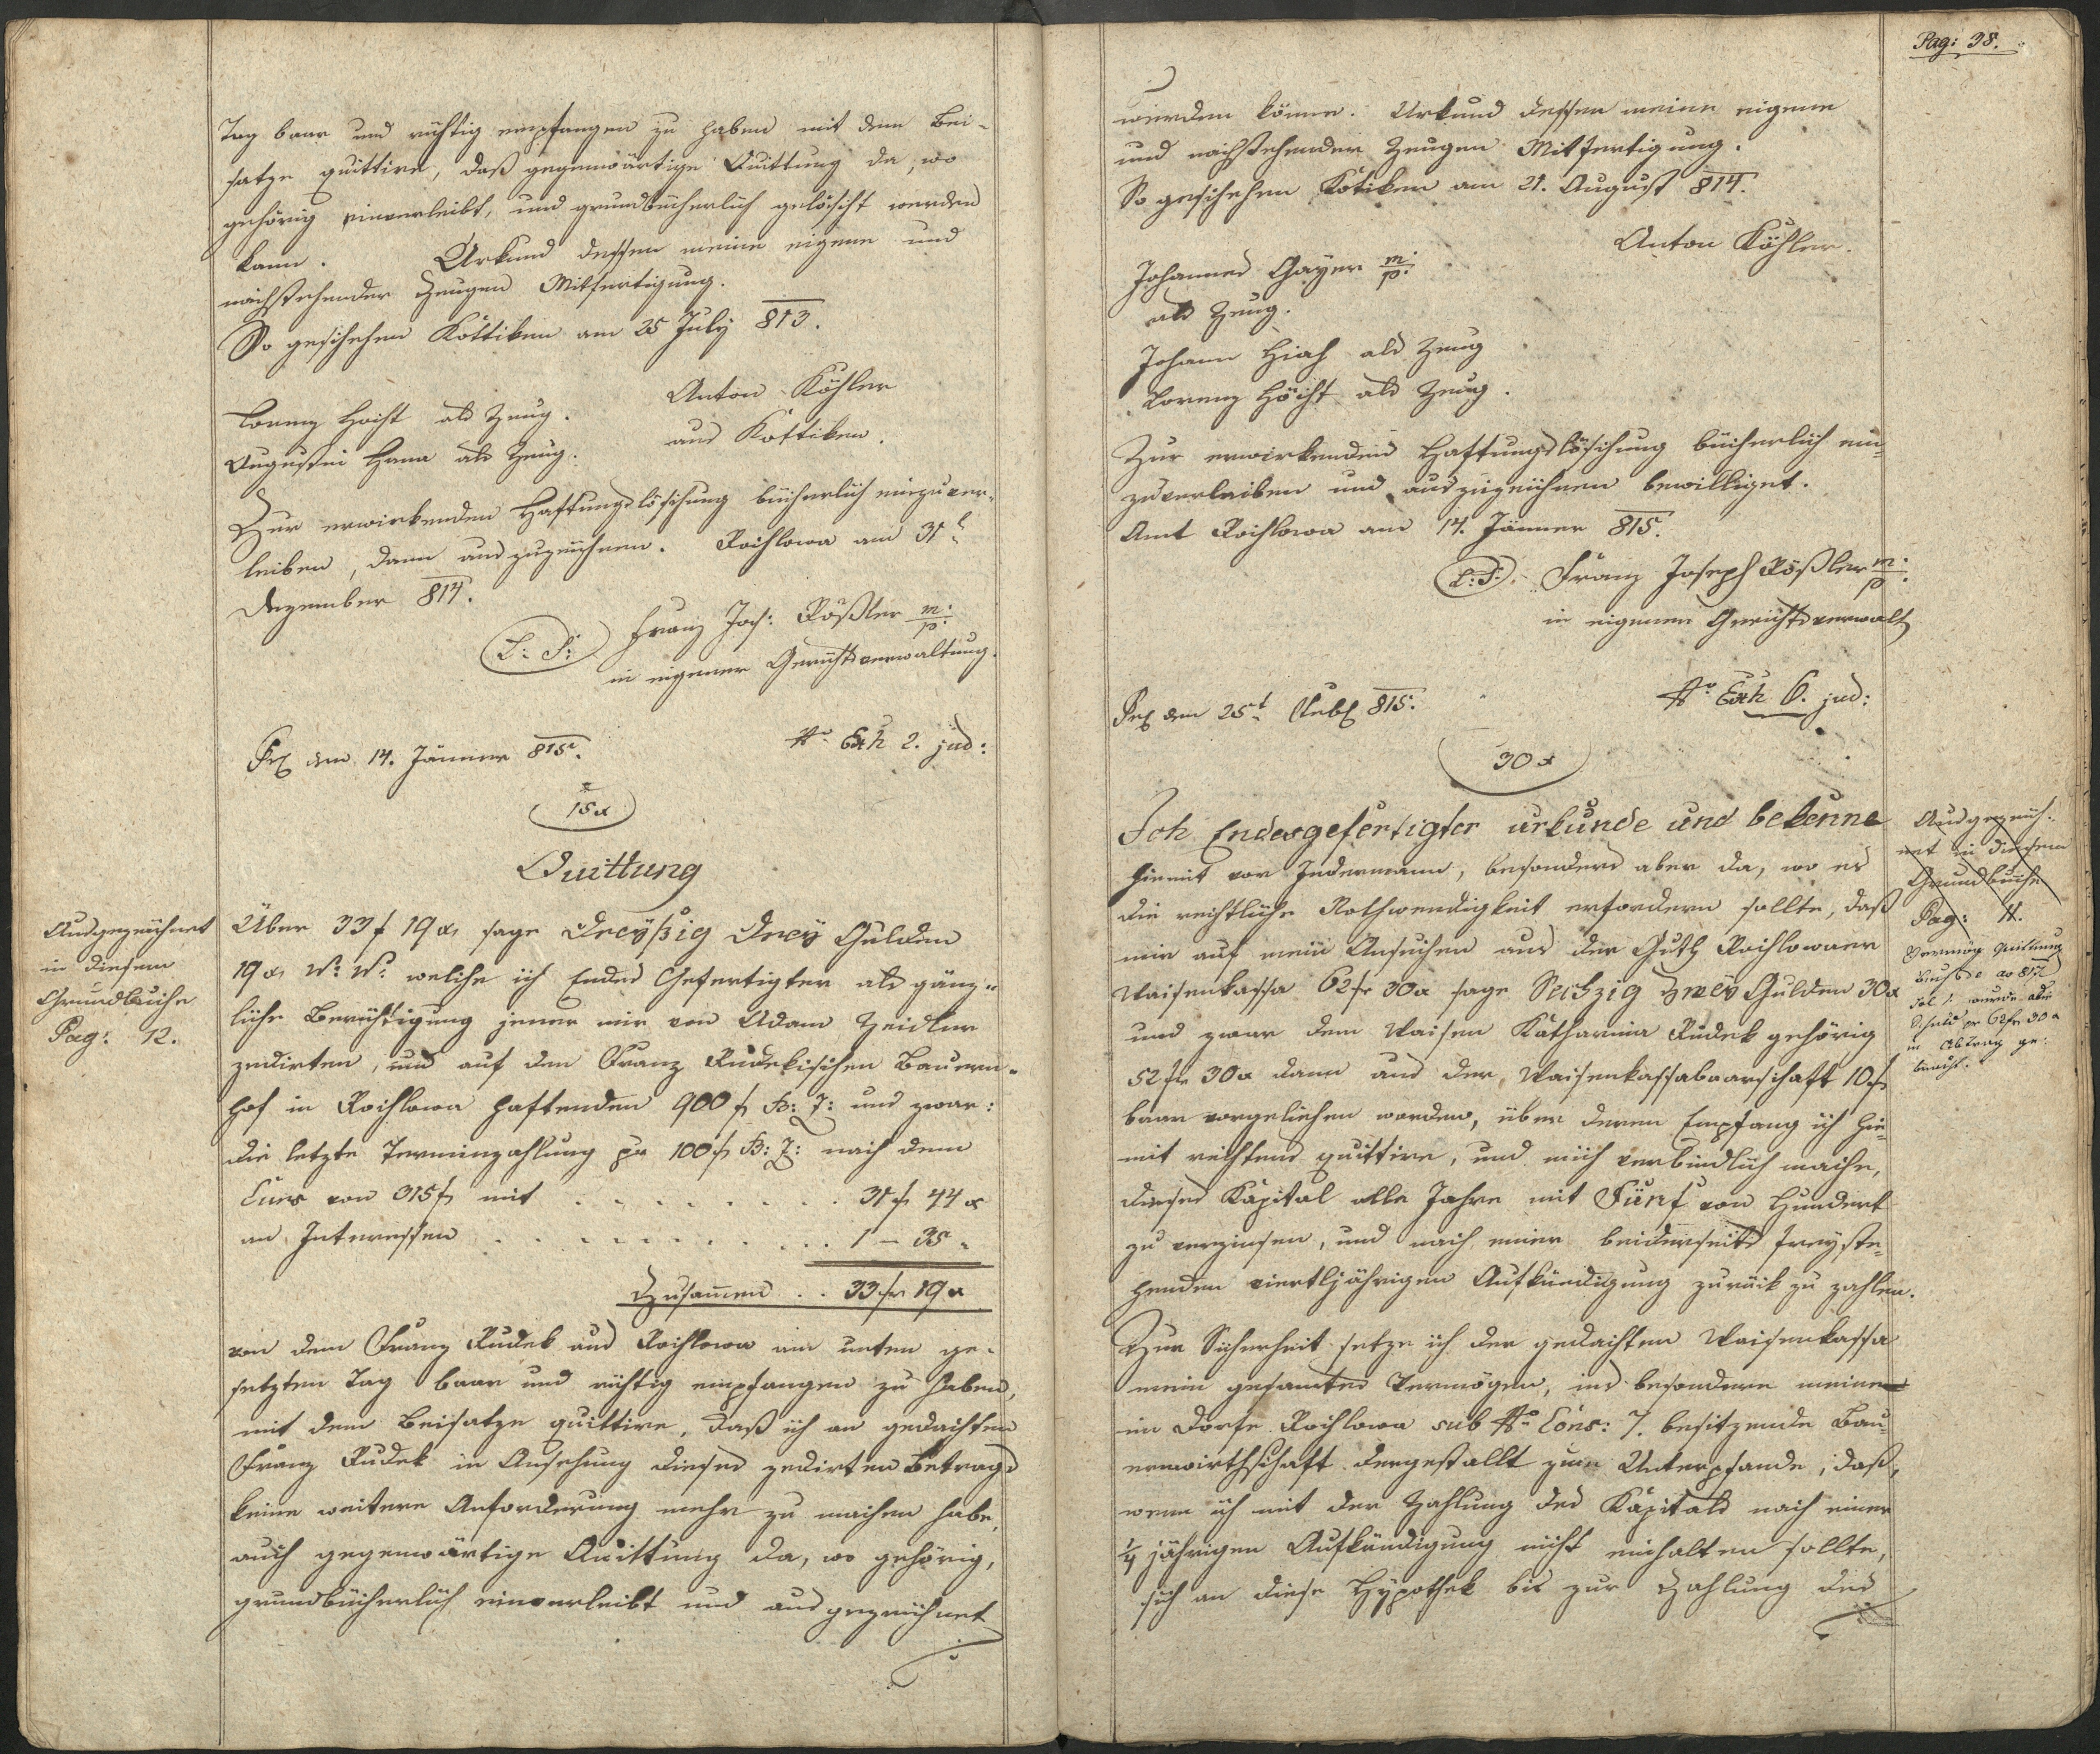 Tag baar und richtig empfangen zu haben mit dem Bei-
satze quittire, daß gegenwärtige Quittung da, wo
gehörig einverleibt, und grundbücherlich gelöscht werden
kann. Urkund dessen meine eigene und
nachstehender Zeugen Mitfertigung.
So geschehen Kottiken am 25 July 813.
Anton Köhler
aus Kottiken.
Lorenz Höcht als Zeug.
Augustin Hana als Zeug.
Zur erwirkenden Haftungslöschung bücherlich einzuver-
leiben, dann auszuzeichnen. Rochlowa am 31t
Dezember 814.
L: S: Franz Jos: Rößler m:p:
in eigener Gerichtsverwaltung.
Prs den 14. Jänner 815. No Exh 2. jud:
15 x
Quittung
Ausgezeichnet
in diesem
Grundbuche
Pag: 12.
Über 33 f 19 x, sage Dreyßig Drey Gulden
19 x, W: W: welche ich Endes Gefertigter als gänz-
liche Berichtigung jener mir von Adam Zeidler
zedirten, und auf den Franz Rudekischen Bauern-
hof in Rochlowa haftenden 900 f B: Z: und zwar:
die letzte Terminzahlung pr 100 f B: Z: nach dem
Curs von 315 f mit . . . . . . . 31 f 44 x
an Interessen . . . . . . . . . . 1 — 35 "
Zusammen . . 33 fr 19 x
von dem Franz Rudek aus Rochlowa am unten ge-
setzten Tag baar und richtig empfangen zu haben,
mit dem Beisatze quittire, daß ich an gedachten
Franz Rudek in Ansehung dieses zedirten Betrags
keine weitere Anforderung mehr zu machen habe,
auch gegenwärtige Quittung da, wo gehörig,
grundbücherlich einverleibt und ausgezeichnet
Pag: 38.
werden könne. Urkund dessen meine eigene
und nachstehender Zeugen Mitfertigung.
So geschehen Kotiken am 21. August 814.
Anton Köhler.
Johannes Gayer m:p:
als Zeug.
Johann als Zeug
Lorenz Höcht als Zeug.
Zur erwirkenden Haftungslöschung bücherlich ein-
zuverleiben und auszuzeichnen bewilliget.
Amt Rochlowa am 14. Jänner 815.
L: S: Franz Joseph Rößler m:p:
in eigener Gerichtsverwalt
Prs den 25t 815. No Exh 6. jud:
30 x
Ich Endesgefertigter urkunde und bekenne
hiemit vor Jedermann, besonders aber da, wo es
die rechtliche Nothwendigkeit erfordern sollte, daß
mir auf mein Ansuchen aus der Guth Rochlowaer
Waisenkassa 62 fr 30 x sage Sechzig Zwey Gulden 30 x
und zwar dem Waisen Katharina Rudek gehörig
52 fr 30 x dann aus der Waisenkassabaarschaft 10 f
baar vorgeliehen worden, über deren Empfang ich hie-
mit rechtens quittire, und mich verbindlich mache,
dieses Kapital alle Jahre mit Fünf von Hundert
zu verzinsen, und nach einer beiderseits freyste-
henden viertljährigen Aufkündigung zurück zu zahlen.
Zur Sicherheit setze ich der gedachten Waisenkassa
mein gesamtes Vermögen, ins besondere meine
im Dorfe Rochlowa sub No Cons: 7. besitzende Bau-
ernwirthschaft dergestallt zum Unterpfande, daß,
wenn ich mit der Zahlung des Kapitals nach einer
1/4 jährigen Aufkündigung nicht einhalten sollte,
sich an diese Hypothek bis zur Zahlung des
Ausgezeich-
net in diesem
Grundbuche
Pag: 11.
Vermög Quittung
Fol 1. wurde die
Schuld pr 62 fr 30 x
in Abtrag ge-
bracht.